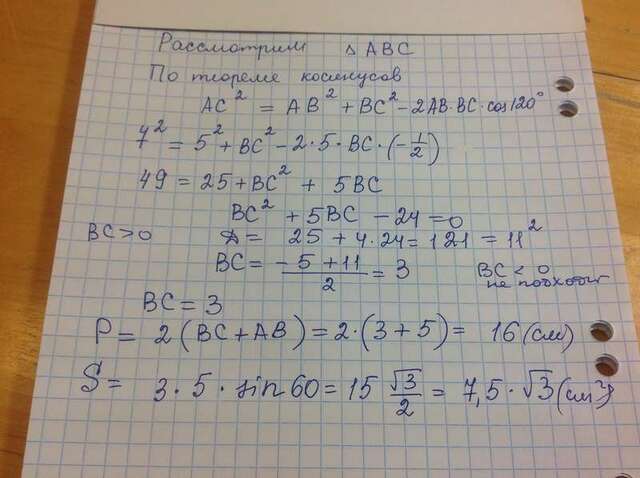 Рассмотрим △ ABC
По теореме косинусов
AC² = AB² + BC² - 2AB·BC·cos120°
7² = 5² + BC² - 2·5·BC·(-1/2)
49 = 25 + BC² + 5BC
BC² + 5BC - 24 = 0
BC > 0 D = 25 + 4·24 = 121 = 11²
BC = (-5 + 11)/2 = 3 BC < 0 не подходит
BC = 3
P = 2(BC + AB) = 2·(3 + 5) = 16 (см)
S = 3·5·sin60 = 15 √3/2 = 7,5·√3 (см²)